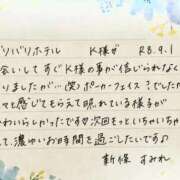 バリバリホテル K様♂ R8.9.1
会いしてすぐK様の事が信じられなく
りましたが…(笑)ポーカーフェイス?でしたが
マも感じてもらえて照れている様子が
かわいらしかったです♡次回もっといちゃいちゃ
して、濃ゆいお時間を過ごしたいです♪
新條 すみれ